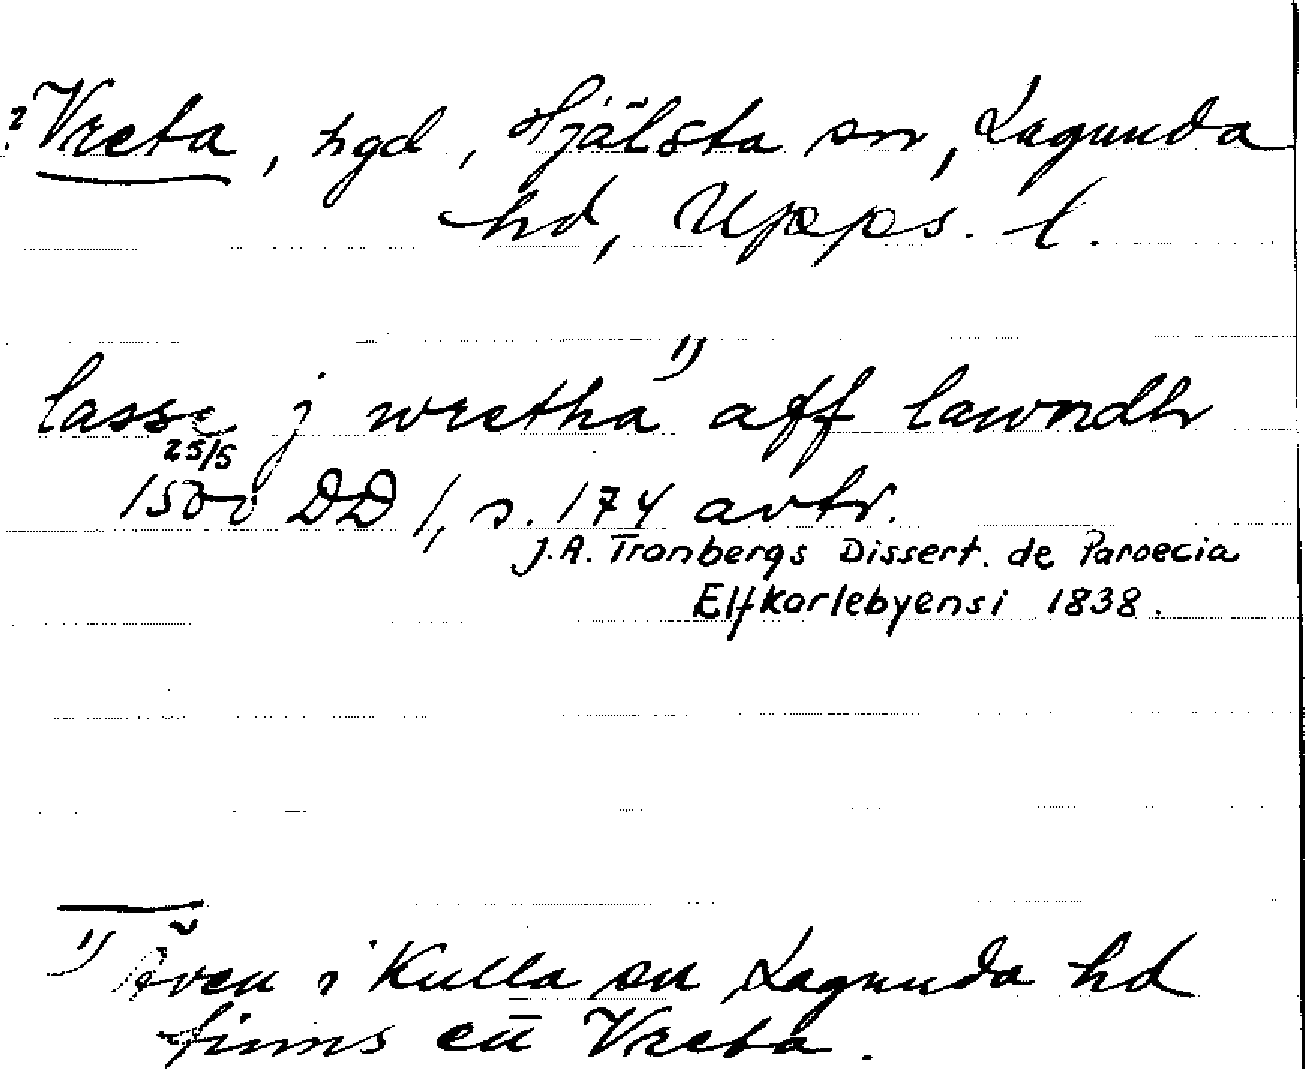 ? Vreta, hgd, Hjälsta sn, Lagunda
hd, Upps. l.
lasse j wretha 1) aff lawndh
25/5
1500 DD 1, s. 174 avtr.
J.A. Tranbergs Dissert. de Paroecia
Elfkarlebyensi 1838.
1) Även i Kulla sn Lagunda hd
finns en Vreta.